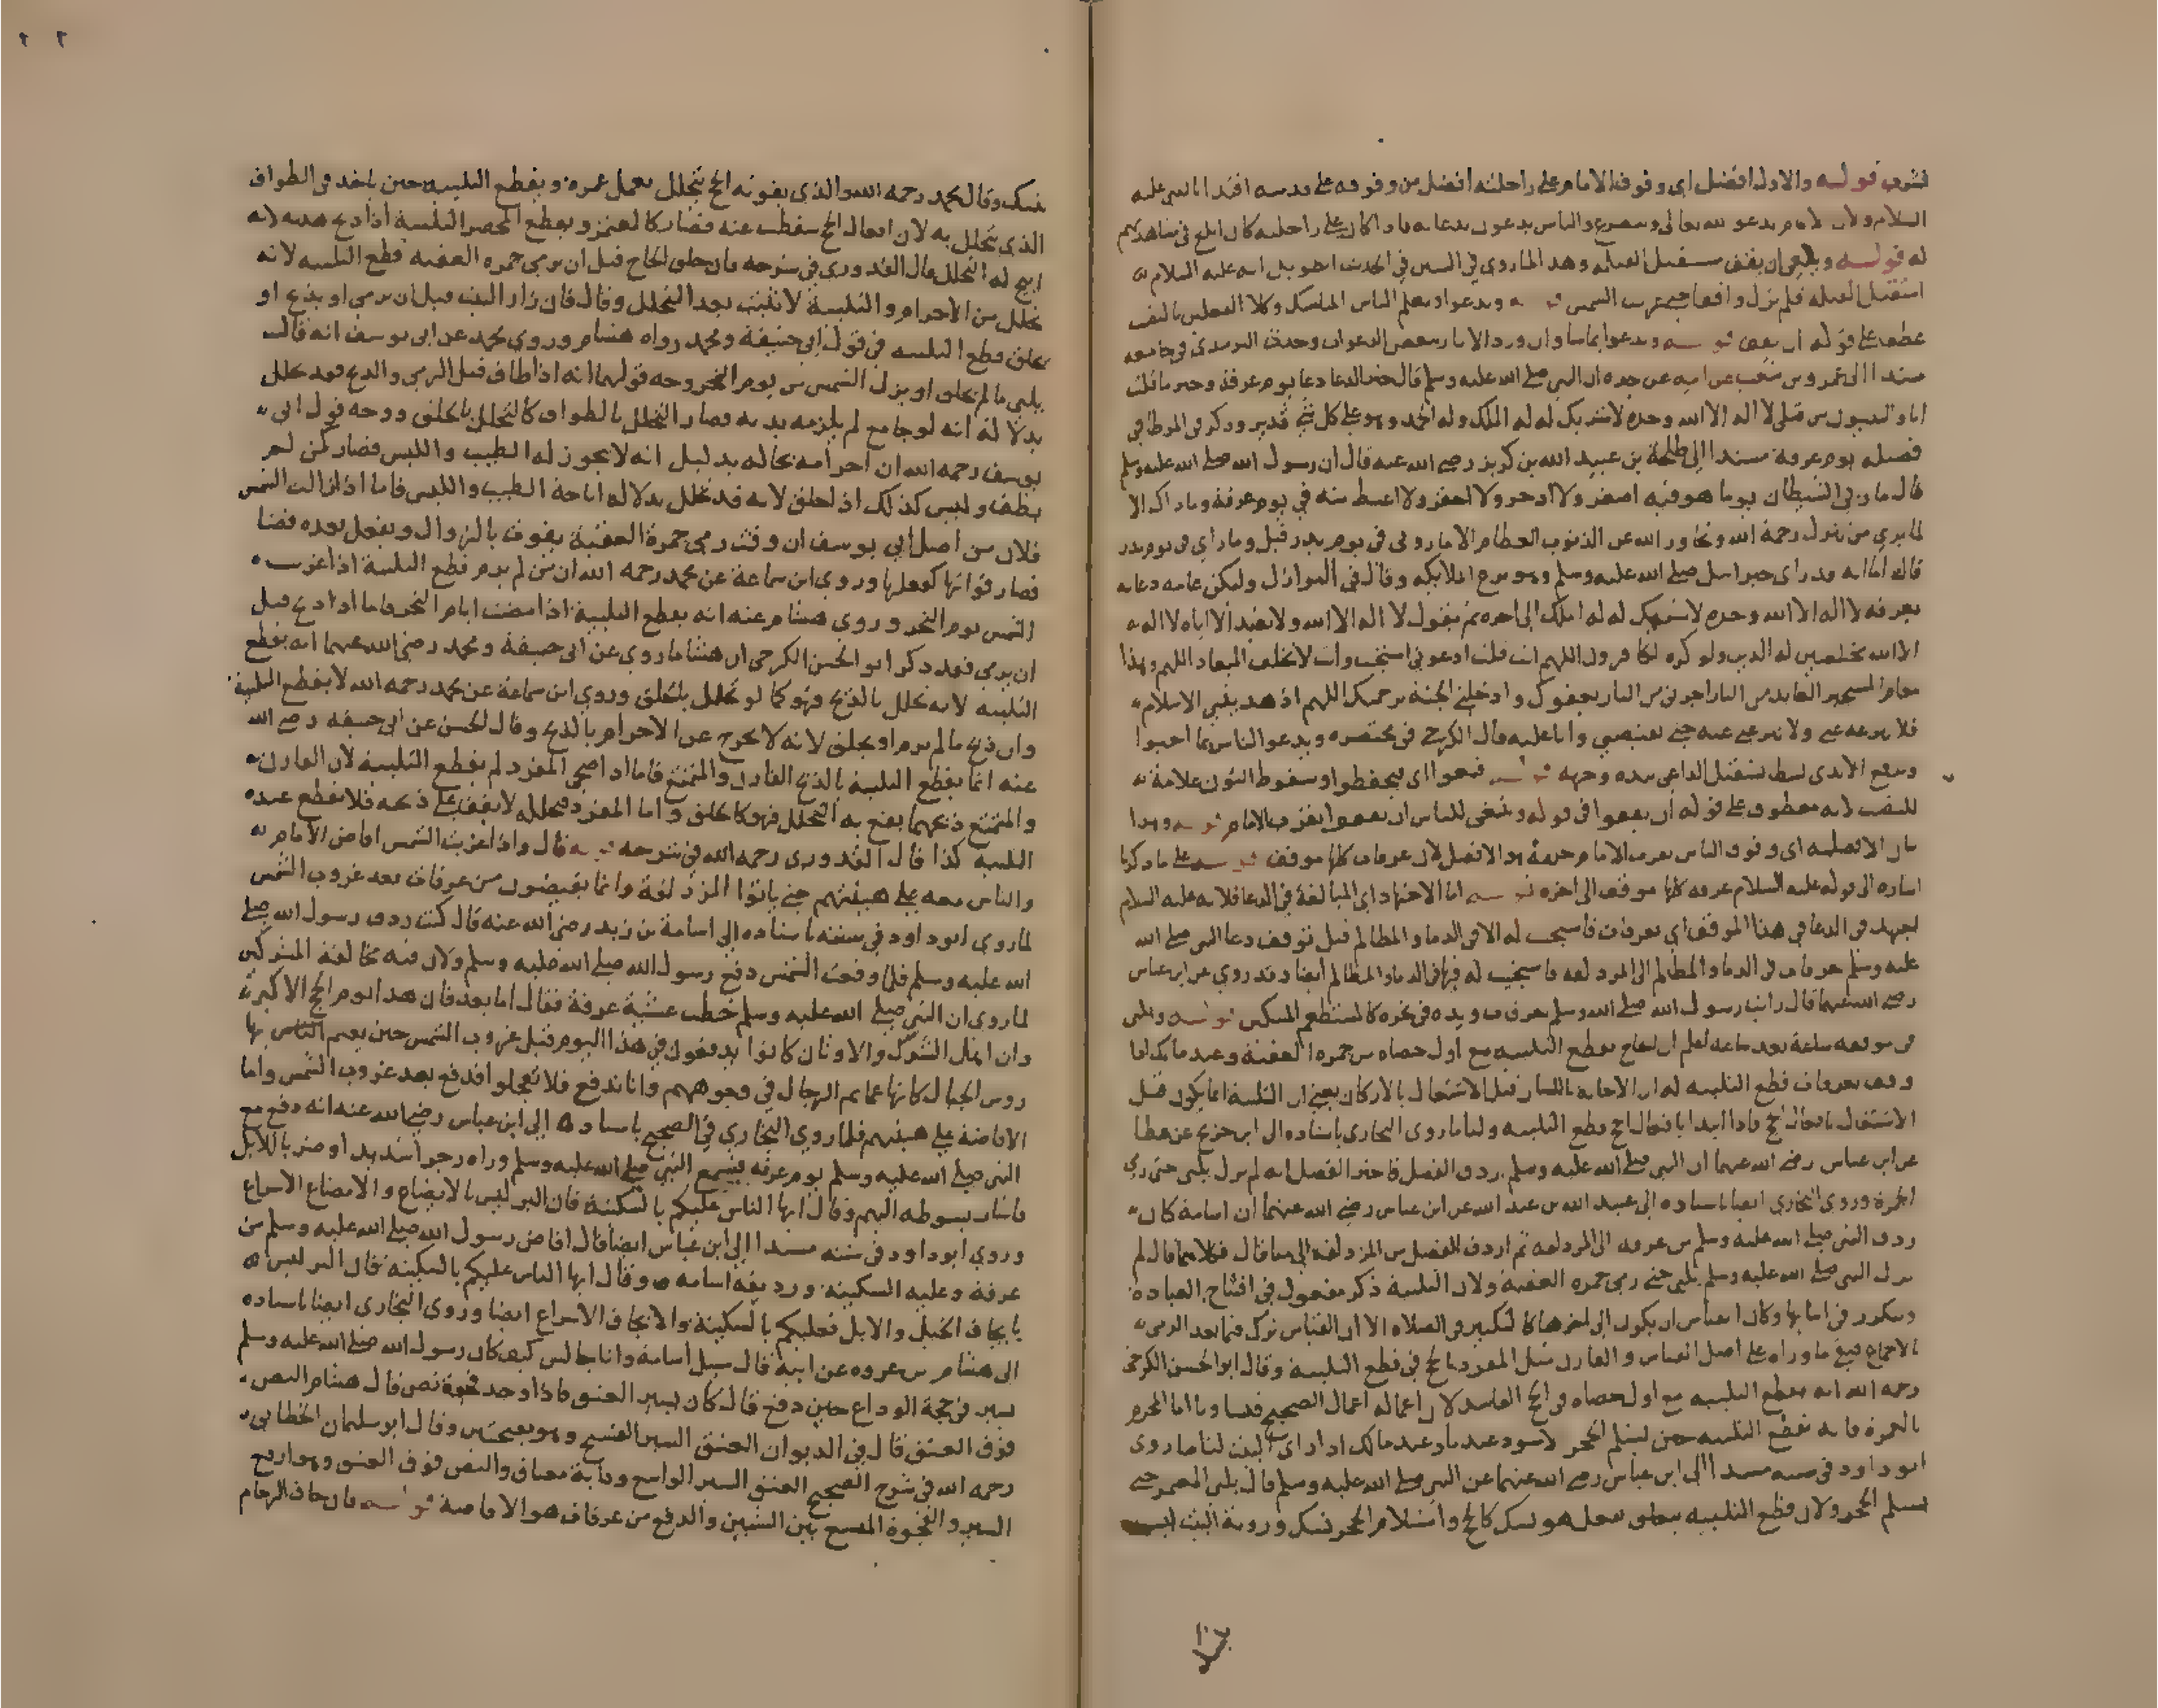 فنقرب قوله والاول افضل اى وقوف الامام على راحلته افضل من وقوفه على قدميه اقتداء بالنبي عليه
السلام ولان الامام يدعو الله تعالى ويتضرع والناس يدعون بدعائه فاذا كان على راحلته كان ابلغ في مشاهدتهم
له قوله وينبغي ان يقف مستقبل القبلة وهذا لما روي في السنن في الحديث الطويل انه عليه السلام
استقبل القبلة فلم يزل واقفا حتى غربت الشمس قوله ويدعو ويعلم الناس المناسك وكلا الفعلين بالنصب
عطف على قوله ان يقف قوله ويدعو بما شا وان ورد الاثار ببعض الدعوات وحديث الترمدي في جامعه
مسندا الى عمرو بن شعيب عن ابيه عن جده ان النبي صلى الله عليه وسلم قال خير الدعا دعا يوم عرفة وخير ما قلت
انا والنبيون من قبلي لا اله الا الله وحده لا شريك له له الملك وله الحمد وهو على كل شي قدير وذكر في الموطا في
فضيلة يوم عرفة مسندا الى طلحة بن عبيد الله بن كريز رضي الله عنه قال ان رسول الله صلى الله عليه وسلم
قال ما رؤي الشيطان يوما هو فيه اصغر ولا ادحر ولا احقر ولا اغيظ منه في يوم عرفة وما ذاك الا
لما يرى من نزول رحمة الله وتجاوز الله عن الذنوب العظام الا ما روئى في يوم بدر قيل وما راي في يوم بدر
قال اما انه قد راى جبرائيل صلى الله عليه وسلم وهو يزع الملائكة وقال في النوازل وليكن عامة دعائه
بعرفة لا اله الا الله وحده لا شريك له له الملك الى اخره ثم يقول لا اله الا الله ولا نعبد الا اياه لا اله
الا الله مخلصين له الدين ولو كره الكافرون اللهم انت قلت ادعوني استجب وانت لا تخلف الميعاد اللهم وهذا
مقام المستجير العايد من النار اجرني من النار بعفوك وادخلني الجنة برحمتك اللهم اذ هديتني الاسلام
فلا تنزعه عني ولا تنزعني عنه حتى تقبضني وانا عليه قال الكرخي في مختصره ويدعو الناس بما احبوا
وترفع الايدي بسطا يستقبل الداعي بيده وجهه قوله فيعوا اى ليحفظوا وسقوط النون علامة
للنصب لانه معطوف على قوله ان يقفوا في قوله وينبغي للناس ان يقفوا بقرب الامام قوله وهذا
بيان الافضلية اى وقوف الناس بقرب الامام
اشارة الى قوله عليه السلام عرفة كلها موقف الى اخره قوله اما الاجتهاد اى المبالغة في الدعا فلانه عليه السلام
اجتهد في الدعا في هذا الموقف اى بعرفات فاستجيب له الا في الدما والمظالم قيل توقف دعا النبي صلى الله
عليه وسلم بعرفات في الدما والمظالم الى المزدلفة فاستجيب له فيها في الدما والمظالم ايضا وقد روي عن ابن عباس
رضي الله عنهما قال رايت رسول الله صلى الله وسلم بعرفات ويده في نحره كالمستطعم المسكين قوله ويلبي
في موقفه ساعة بعد ساعة اعلم ان الحاج يقطع التلبية مع اول حصاة من جمرة العقبة وعند مالك اذا
وقف بعرفات قطع التلبية له ان الاجابة باللسان قبل الاشتغال بالاركان يعني ان التلبية انما يكون قبل
الاشتغال بافعال الحج فاذا ابتدا بافعال الحج قطع التلبية ولنا ما روى البخاري باسناده الى ابن جريج عن عطا
عن ابن عباس رضي الله عنهما ان النبي صلى الله عليه وسلم اردف الفضل فاخبر الفضل انه لم يزل يلبي حتى رمى
الجمرة وروى البخاري ايضا باسناده الى عبيد الله بن عبد الله عن ابن عباس رضي الله عنهما ان اسامة كان
ردف النبي صلى الله عليه وسلم من عرفة الى المزدلفة ثم اردف الفضل من المزدلفة الى منا قال فكلاهما قال لم
يزل النبي صلى الله عليه وسلم يلبي حتى رمى جمرة العقبة ولان التلبية ذكر مفعول في افتتاح العبادة
ويتكرر في اثنائها وكان القياس ان يكون الى اخرها كالتكبير في الصلاة الا ان القياس ترك فيما بعد الرمي
بالاجماع فبقي ما وراه على اصل القياس والقارن مثل المفرد بالحج في قطع التلبية وقال ابو الحسن الكرخي
رحمه الله انه يقطع التلبية مع اول حصاة في الحج الفاسد لان اعماله اعمال الصحيح واما المحرم
بالعمرة فانه يقطع التلبية حين يستلم الحجر الاسود عندنا وعند مالك اذا راى البيت لنا ما روى
ابو داود في سننه مسندا الى ابن عباس رضي الله عنهما عن النبي صلى الله عليه وسلم قال يلبي المعتمر حتى
يستلم الحجر ولان قطع التلبية يتعلق بفعل هو نسك كالحج واستلام الحجر نسك وروية البيت ليس
بنسك وقال محمد رحمه الله والذى يفوته الحج يتحلل بعمل عمرة ويقطع التلبية حين ياخذ في الطواف
الذي يتحلل به لان افعال الحج سقطت عنه فصار كالمعتمر ويقطع المحصر التلبية اذا ذبح هديه لانه
ابيح له التحلل قال القدوري في شرحه فان حلق الحاج قبل ان يرمي جمرة العقبة قطع التلبية لانه
تحلل من الاحرام والتلبية لا تثبت بعد التحلل وقال فان زار البيت قبل ان يرمي او يذبح او
يحلق قطع التلبية في قول ابي حنيفة ومحمد رواه هشام وروي محمد عن ابي يوسف انه قال
يلبي ما لم يحلق او يزل الشمس من يوم النحر وجه قولهما انه اذا طاف قبل الرمي والذبح فقد تحلل
بدلالة انه لو جامع لم يلزمه بدنة فصار التحلل بالطواف كالتحلل بالحلق ووجه قول ابي
يوسف رحمه الله ان احرامه بحاله بدليل انه لا يجوز له الطيب واللبس فصار كمن لم
يطف وليس كذلك اذا حلق لانه قد تحلل بدلالة اباحة الطيب واللبس فاما اذا زالت الشمس
فلان من اصل ابي يوسف ان وقت رمي جمرة العقبة يفوت بالزوال ويفعل بعده قضا
فصار فواتها كفعلها وروى ابن سماعة عن محمد رحمه الله ان من لم يرم قطع التلبية اذا غربت
الشمس يوم النحر وروى هشام عنه انه يقطع التلبية اذا مضت ايام النحر فاما اذا ذبح قبل
ان يرمي فقد ذكر ابو الحسن الكرخي ان هشاما روى عن ابي حنيفة ومحمد رضي الله عنهما انه يقطع
التلبية لانه تحلل بالذبح فهو كما لو تحلل بالحلق وروى ابن سماعة عن محمد رحمه الله لا يقطع التلبية
وان ذبح ما لم يرم او يحلق لانه لا يخرج عن الاحرام بالذبح وقال الحسن عن ابي حنيفة رضي الله
عنه انما يقطع التلبية بالذبح القارن والمتمتع فاما اذا ضحى المفرد لم يقطع التلبية لان القارن
والمتمتع ذبحهما يقع به التحلل فهو كالحلق واما المفرد فتحلله لا يقف على ذبحه فلا يقطع عنده
التلبية كذا قال القدورى رحمه الله في شرحه قوله قال واذا غربت الشمس افاض الامام
والناس معه على هينتهم حتى ياتوا المزدلفة وانما يفيضون من عرفات بعد غروب الشمس
لما روى ابو داود في سننه باسناده الى اسامة بن زيد رضي الله عنه قال كنت ردف رسول الله صلى
الله عليه وسلم فلما وقعت الشمس دفع رسول الله صلى الله عليه وسلم ولان فيه مخالفة المشركين
لما روى ان النبي صلى الله عليه وسلم خطب عشية عرفة فقال اما بعد فان هذا يوم الحج الاكبر
وان اهل الشرك والاوثان كانوا يدفعون في هذا اليوم قبل غروب الشمس حين يعم الناس بها
روس الجبال كانها عمايم الرجال في وجوههم وانا ندفع فلا تعجلوا فدفع بعد غروب الشمس واما
الافاضة على هينتهم فلما روى البخاري في الصحيح باسناده الى ابن عباس رضي الله عنه انه دفع مع
النبي صلى الله عليه وسلم يوم عرفة فسمع النبي صلى الله عليه وسلم وراه زجرا شديدا وضربا للابل
فاشار بسوطه اليهم وقال ايها الناس عليكم بالسكينة فان البر ليس بالايضاع والايضاع الاسراع
وروى ابو داود في سننه مسندا الى ابن عباس ايضا قال افاض رسول الله صلى الله عليه وسلم من
عرفة وعليه السكينة ورديفه اسامة وقال ايها الناس عليكم بالسكينة فان البر ليس
بايجاف الخيل والابل فعليكم بالسكينة والايجاف الاسراع ايضا وروى البخاري ايضا باسناده
الى هشام بن عروة عن ابيه قال سيل اسامة وانا جالس كيف كان رسول الله صلى الله عليه وسلم
يسير في حجة الوداع حين دفع قال كان يسير العنق فاذا وجد فجوة نص قال هشام النص
فوق العنق قال في الديوان العنق السير الفسيح وقال ابو سليمان الخطابي
رحمه الله في شرح الصحيح العنق السير الواسع ودابة معناق والنص فوق العنق وهو ارفع
السير والفجوة المتسع بين الشيين والدفع من عرفات هو الافاضة قوله فان خاف الزحام